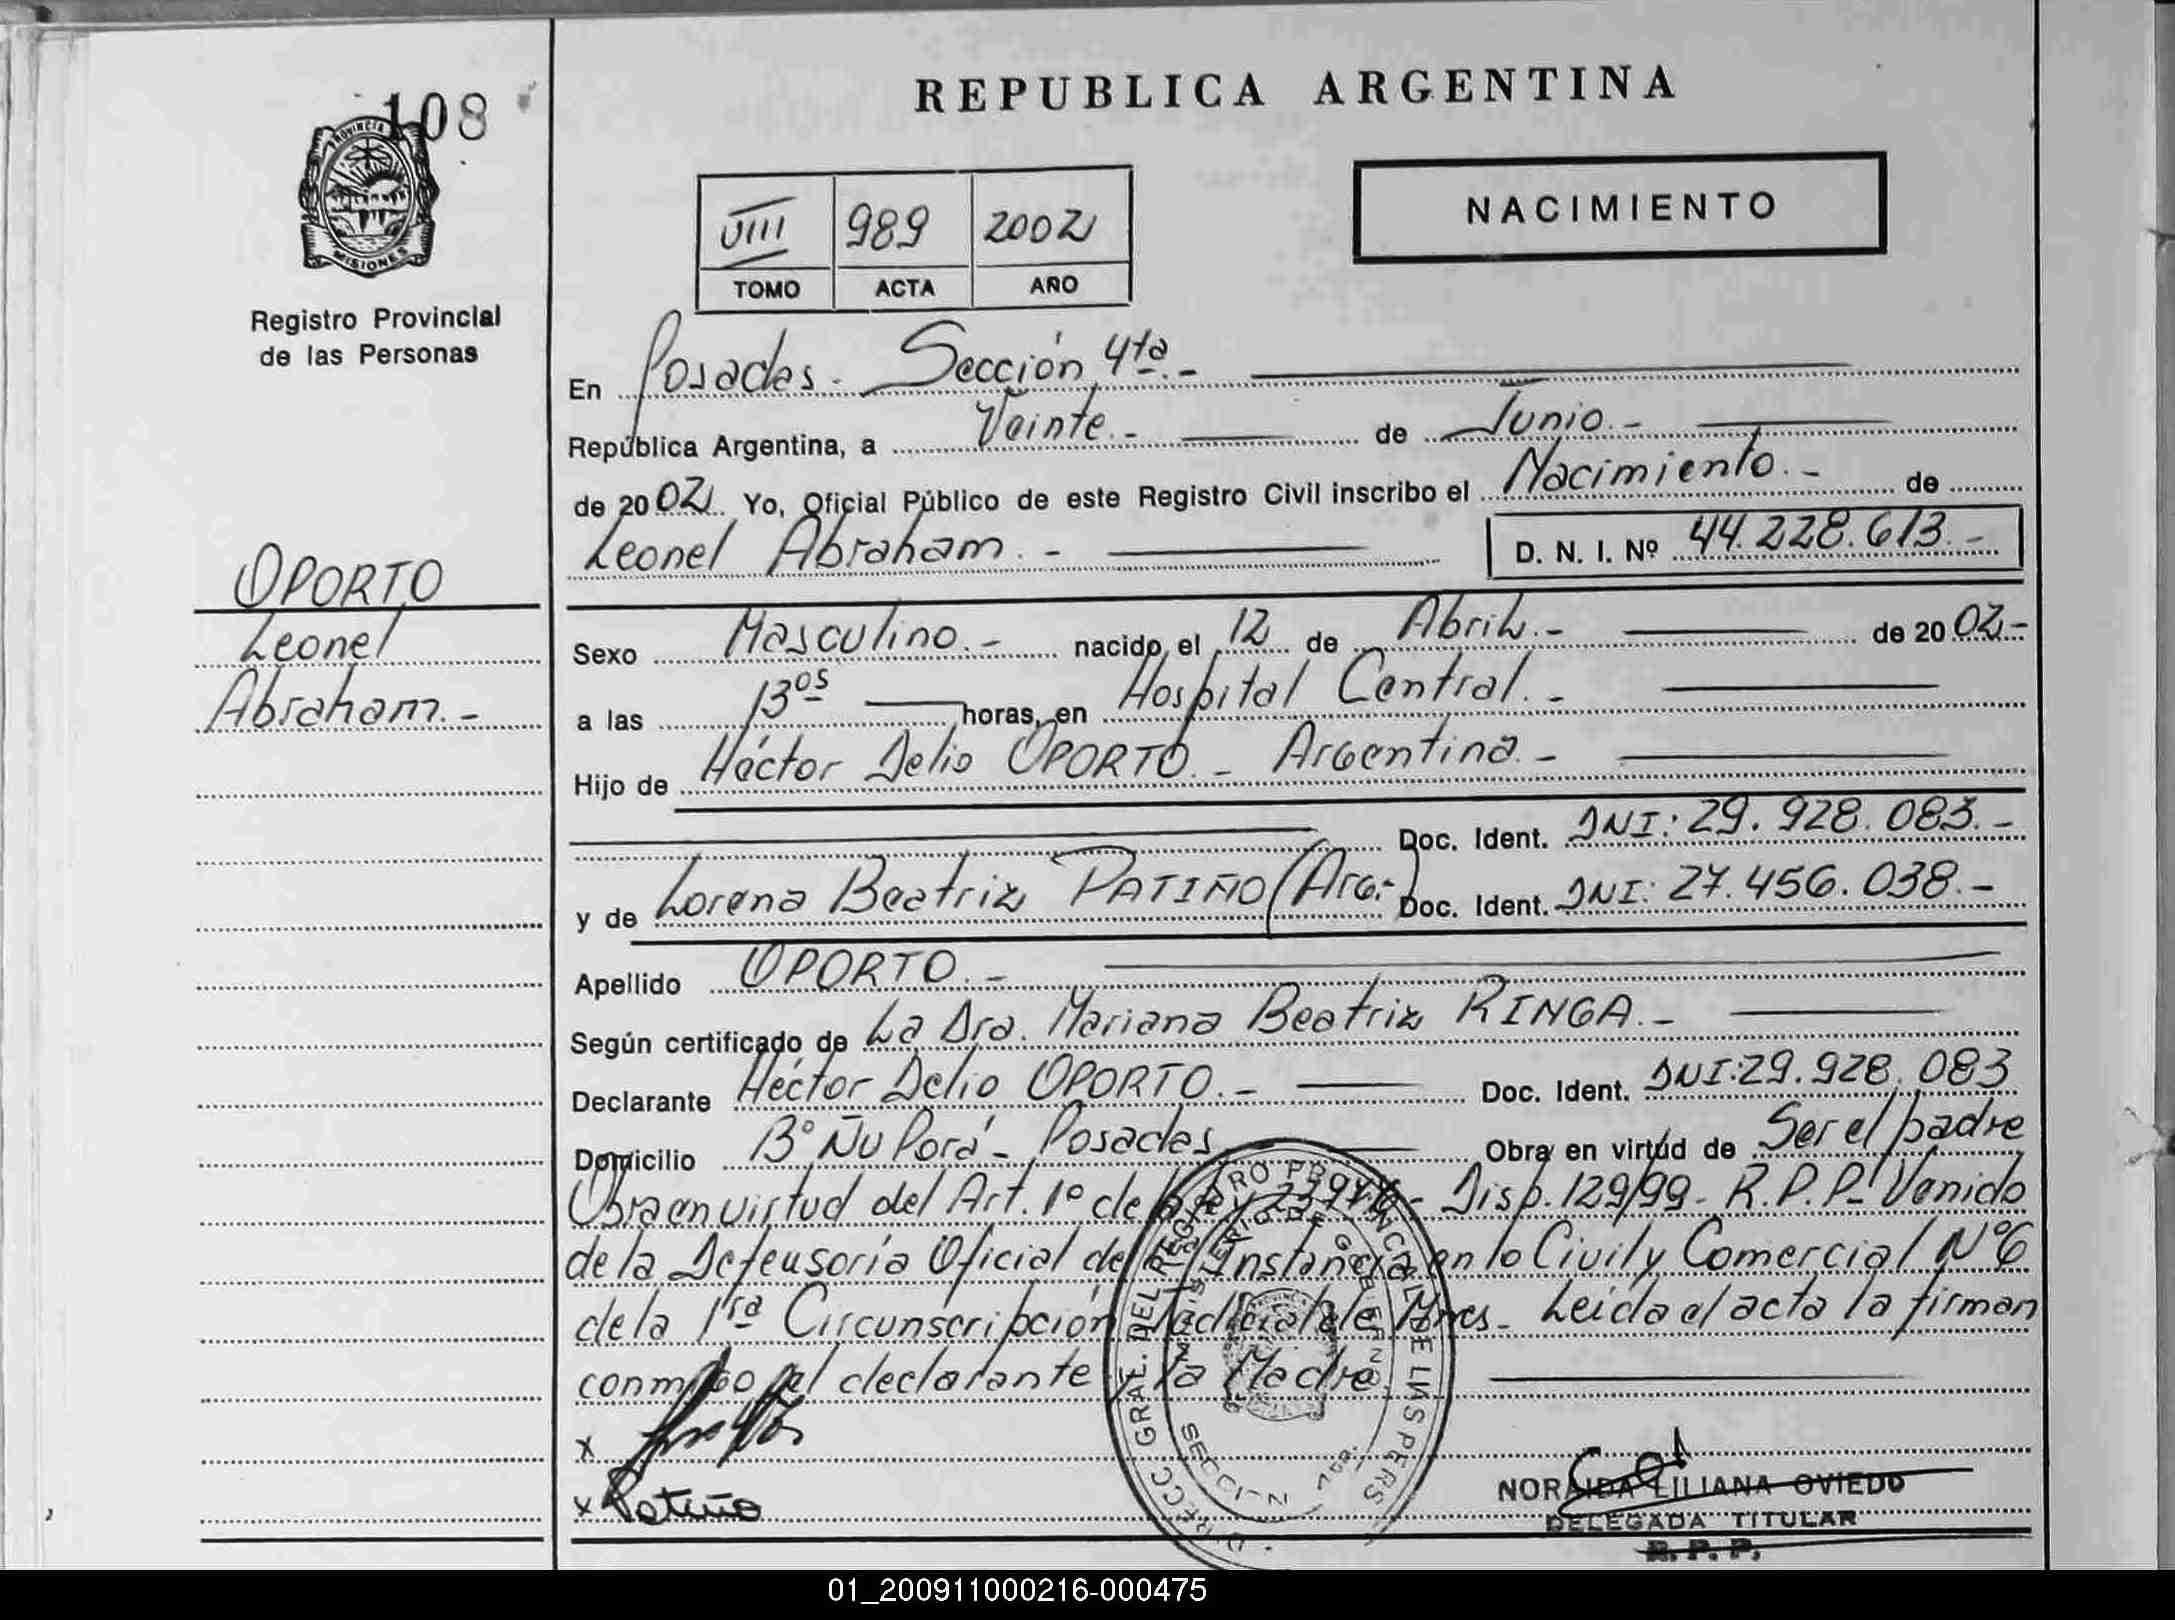 108
PROVINCIA
MISIONES
Registro Provincial
de las Personas
OPORTO
Leonel
Abraham.-
REPUBLICA ARGENTINA
VIII 989 2002
TOMO ACTA AÑO
NACIMIENTO
En Posadas. Sección 4ta.-
República Argentina, a Veinte.- de Junio.-
de 2002 Yo, Oficial Público de este Registro Civil inscribo el Nacimiento.- de
Leonel Abraham.- D. N. I. Nº 44.228.613.-
Sexo Masculino.- nacido el 12 de Abril.- de 2002-
a las 13os horas, en Hospital Central.-
Hijo de Héctor Delio OPORTO.- Argentina.-
Doc. Ident. DNI: 29.928.083.-
y de Lorena Beatriz PATIÑO (Arg.-) Doc. Ident. DNI: 27.456.038.-
Apellido OPORTO.-
Según certificado de La Dra. Mariana Beatriz RINGA.-
Declarante Héctor Delio OPORTO.- Doc. Ident. DNI: 29.928.083
Domicilio Bº Ñu Porá - Posadas Obra en virtud de Ser el padre
Obra en virtud del Art. 1º de la Ley - Disp. 129/99- R.P.P- Venido
de la Defensoría Oficial de Instancia en lo Civil y Comercial Nº6
de la 1ra Circunscripción Judicial de Mnes- Leída el acta la firman
conmigo el declarante y la Madre
x
x Patiño
NORAIDA LILIANA OVIEDO
DELEGADA TITULAR
R. P. P.
01_200911000216-000475